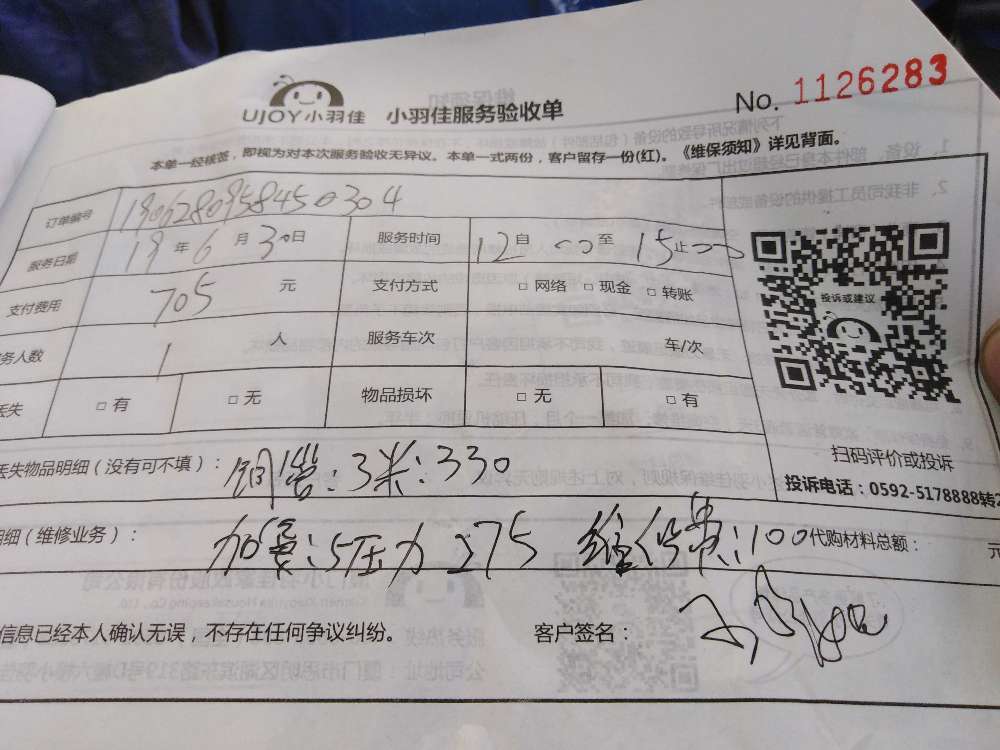 UJOY小羽佳 小羽佳服务验收单 No. 1126283
本单一经核签，即视为对本次服务验收无异议。本单一式两份，客户留存一份(红)。《维保须知》详见背面。
订单编号 190628095845 0304
服务日期 19年6月30日 服务时间 12自00至15止00
支付费用 705 元 支付方式 □ 网络 □ 现金 □ 转账
务人数 1 人 服务车次 车/次
丢失 □ 有 □ 无 物品损坏 □ 无 □ 有
投诉或建议
扫码评价或投诉
投诉电话：0592-5178888转2
丢失物品明细（没有可不填）： 铜管：3米：330
明细（维修业务）： 加氟：5压力 275 维保费：100 代购材料总额： 元
信息已经本人确认无误，不存在任何争议纠纷。 客户签名：